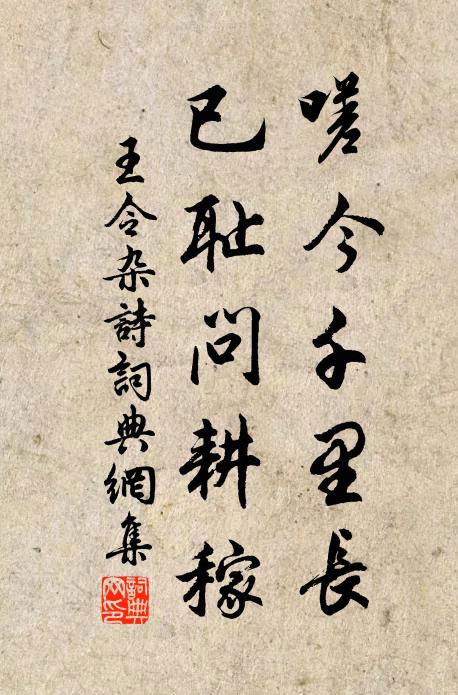 嗟今千里長
已耻問耕稼
王令杂詩詞典網集
詞典
网印